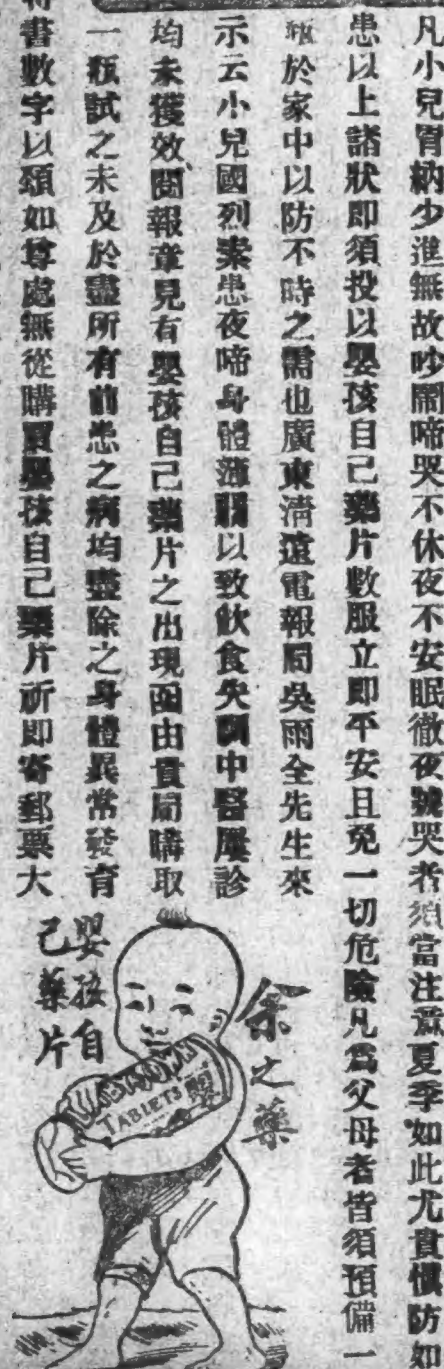 凡小兒胃納少進無故吵鬧啼哭不休夜不安眠徹夜號哭者須當注意夏季如此尤貴慎防如
患以上諸狀即須投以嬰孩自己藥片數服立即平安且免一切危險凡爲父母者皆須預備一
瓶於家中以防不時之需也廣東清遠電報局吳雨全先生來
示云小兒國烈素患夜啼身體薄弱以致飲食失調中醫屢診
均未獲效閱報章見有嬰孩自己藥片之出現函由貴局購取
一瓶試之未及於盡所有前患之病均盡除之身體異常發育
特書數字以頌如尊處無從購買嬰孩自己藥片祈即寄郵票大
余之藥
TABLETS
嬰孩自
己藥片